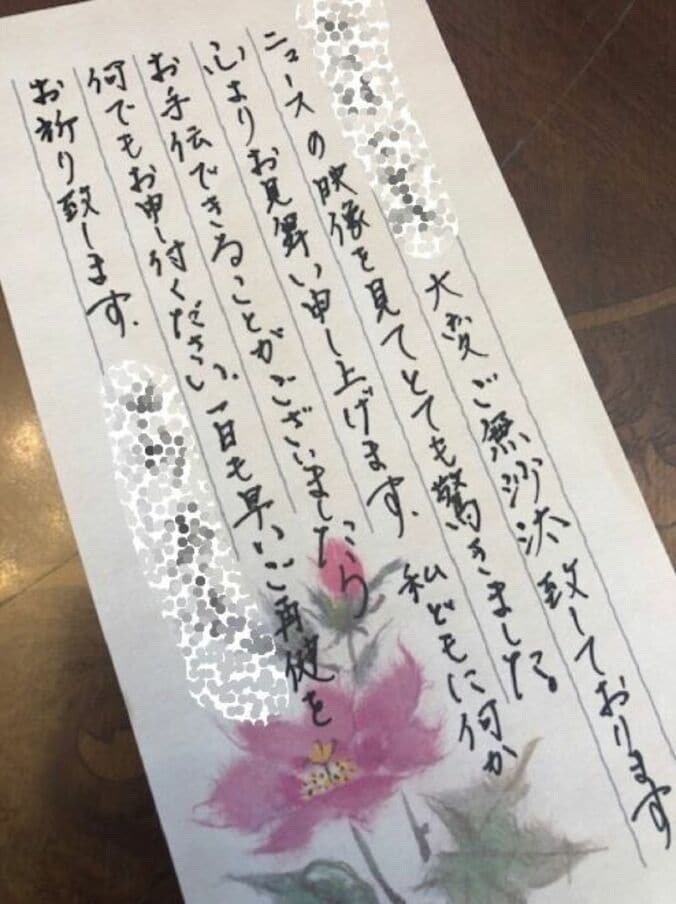 大変ご無沙汰致しております
ニュースの映像を見てとても驚きました。
心よりお見舞い申し上げます. 私どもに何か
お手伝できることがございましたら
何でもお申し付ください、一日も早いご再健を
お祈り致します.